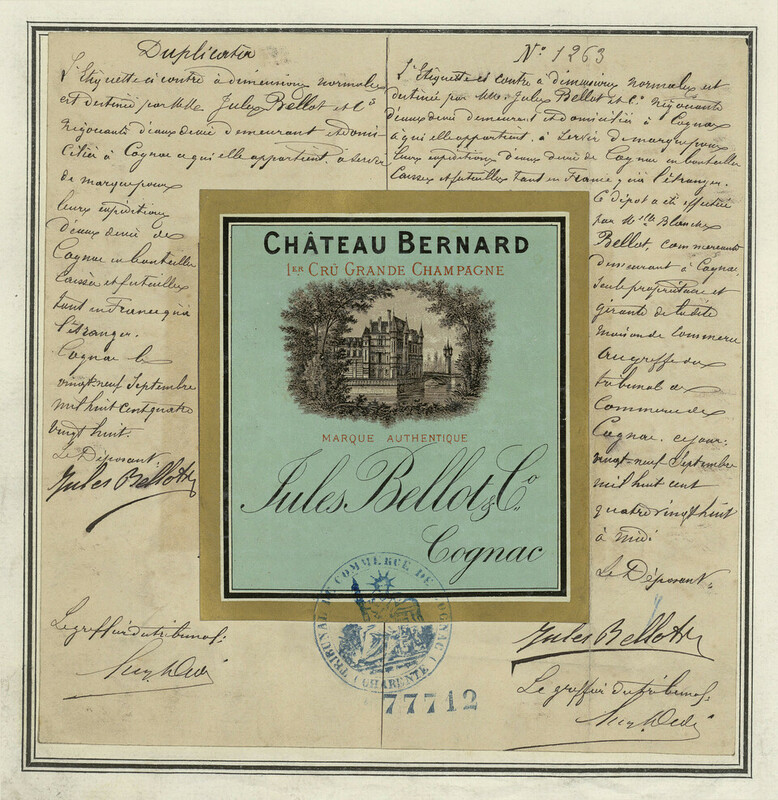 Duplicata
L'Etiquette ci contre à dimensions normales
est destinée par MMe Jules Bellot et Cº
négociants d'eaux devie demeurant et domi-
ciliés à Cognac a qui elle appartient, à servir
de marque pour
leurs expéditions
d'eaux devie de
Cognac en bouteilles
Caisses et futailles
tant en France qu'à
l'étranger.
Cognac le
vingt-neuf Septembre
mil huit cent quatre
vingt huit.
Le Déposant
Jules Bellot &
Le greffier du tribunal.
Nº 1263
L'Etiquette ci contre à dimensions normales est
destinée par MM. Jules Bellot et Cº négociants
d'eaux devie demeurant et domiciliés à Cognac
à qui elle appartient, à servir de marque pour
leurs expéditions d'eaux devie de Cognac en bouteilles
Caisses et futailles tant en France, qu'à l'étranger.
Ce dépot a été effectué
par Mlle Blanche
Bellot, commercante
demeurant à Cognac,
seule propriétaire et
gérante de ladite
maison de commerce
au greffe du
tribunal de
Commerce de
Cognac, ce jour
vingt-neuf Septembre
mil huit cent
quatre vingt huit
à midi
Le Déposant,
Jules Bellot &
Le greffier du tribunal.
CHÂTEAU BERNARD
1ER CRÛ GRANDE CHAMPAGNE
MARQUE AUTHENTIQUE
Jules Bellot & Cº
Cognac
TRIBUNAL DE COMMERCE DE COGNAC (CHARENTE)
77712